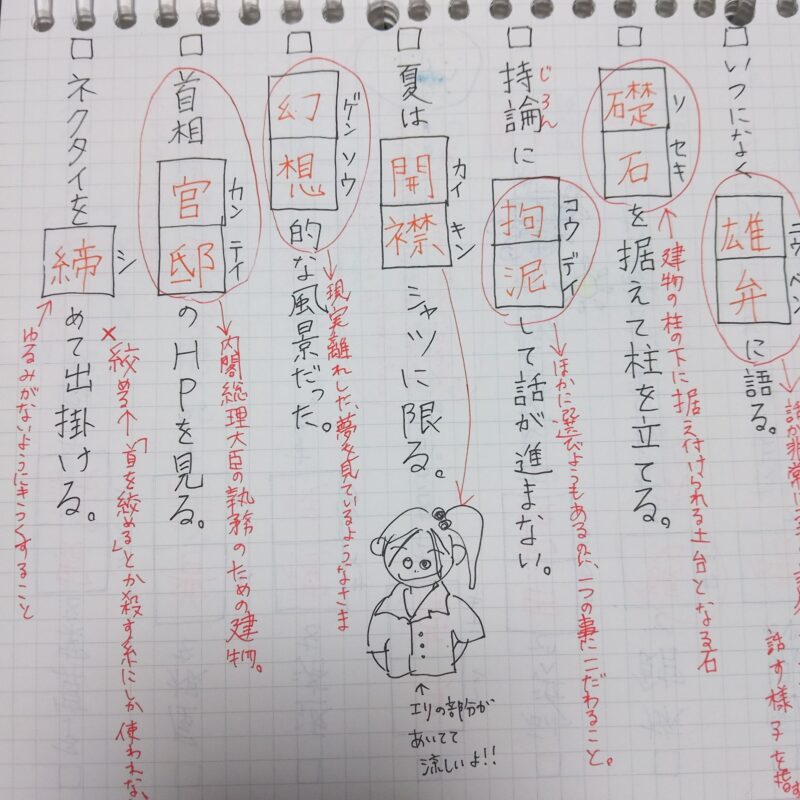 いつになく雄弁に語る。
ベン
話す様子を指す
礎石を据えて柱を立てる。
ソ セキ
建物の柱の下に据え付けられる土台となる石
持論に拘泥して話が進まない。
じろん
コウ デイ
ほかに選びようもあるのに、一つの事にこだわること。
夏は開襟シャツに限る。
カイ キン
エリの部分が
あいてて
涼しいよ!!
幻想的な風景だった。
ゲン ソウ
現実離れした、夢を見ているようなさま
首相官邸のHPを見る。
カン テイ
内閣総理大臣の執務のための建物。
ネクタイを締めて出掛ける。
シ
×絞める←「首を絞める」とか殺す系にしか使われない
ゆるみがないようにきつくすること